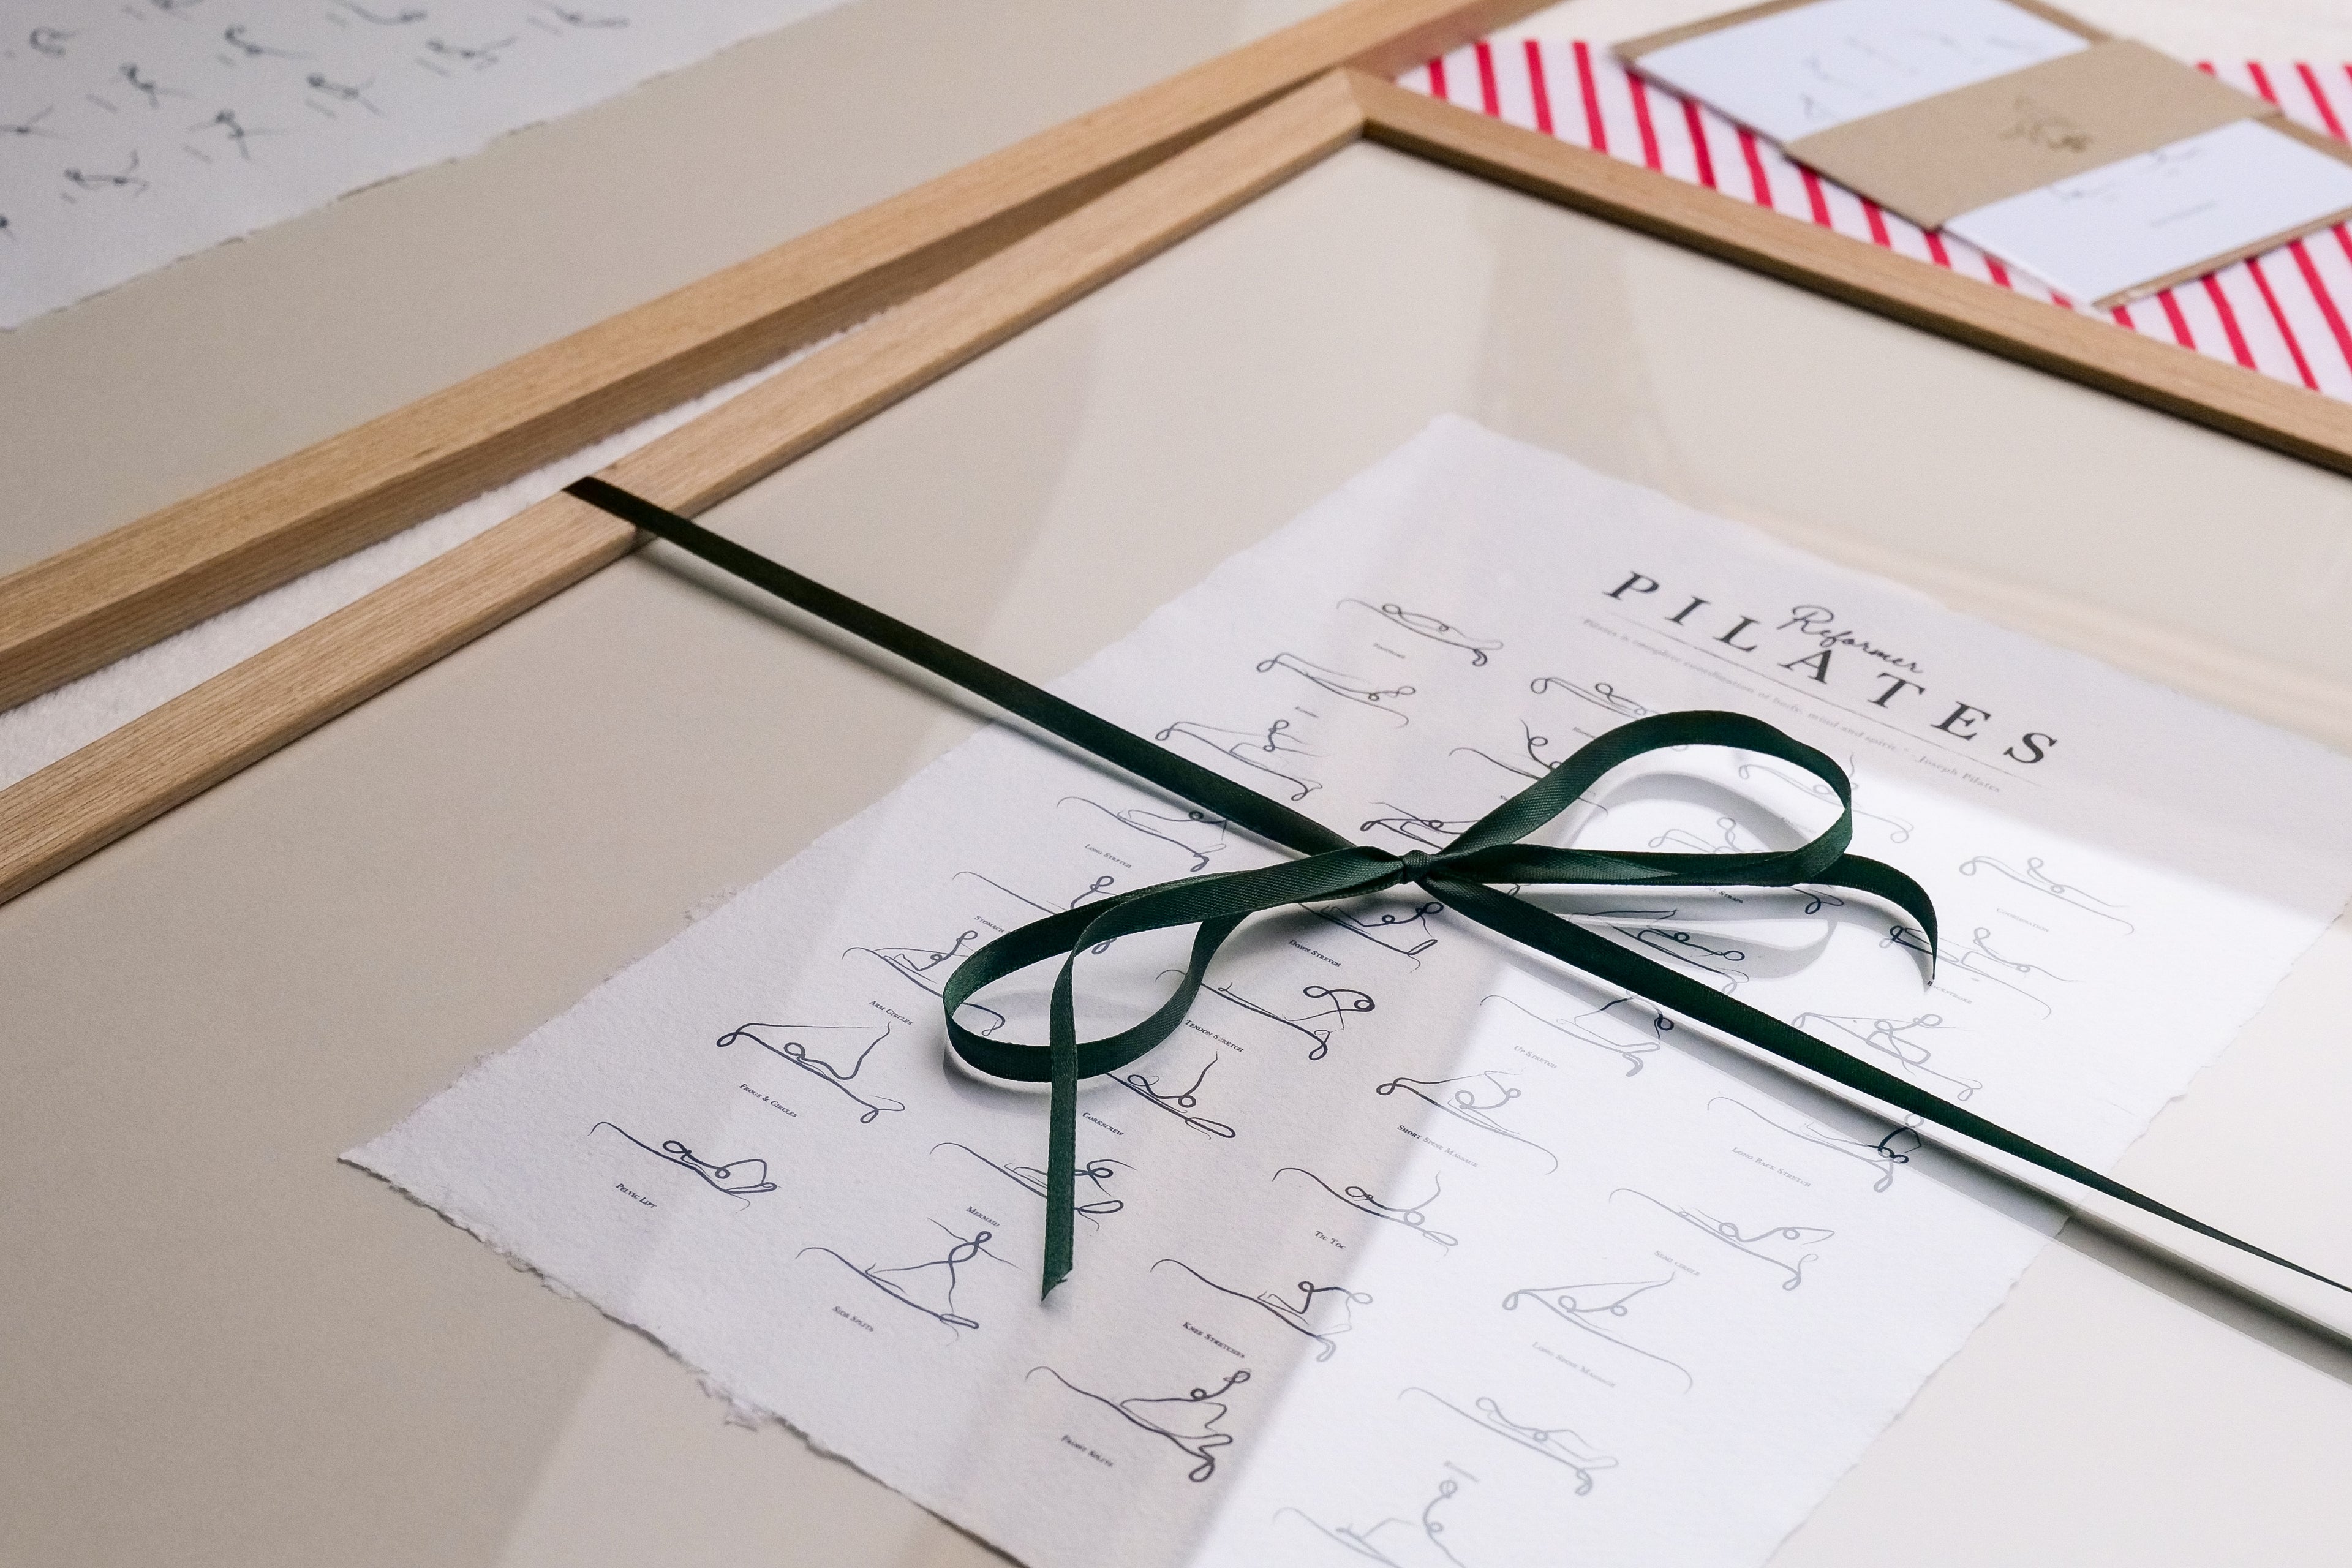 Reformer
PILATES
Pilates is complete coordination of body, mind and spirit." - Joseph Pilates
Long Stretch
Stomach
Arm Circles
Frogs & Circles
Pelvic Lift
Down Stretch
Tendon Stretch
Corkscrew
Mermaid
Side Splits
Up Stretch
Short Spine Massage
Tic Toc
Knee Stretches
Front Splits
Straps
Coordination
Backstroke
Long Back Stretch
Semi Circle
Long Spine Massage